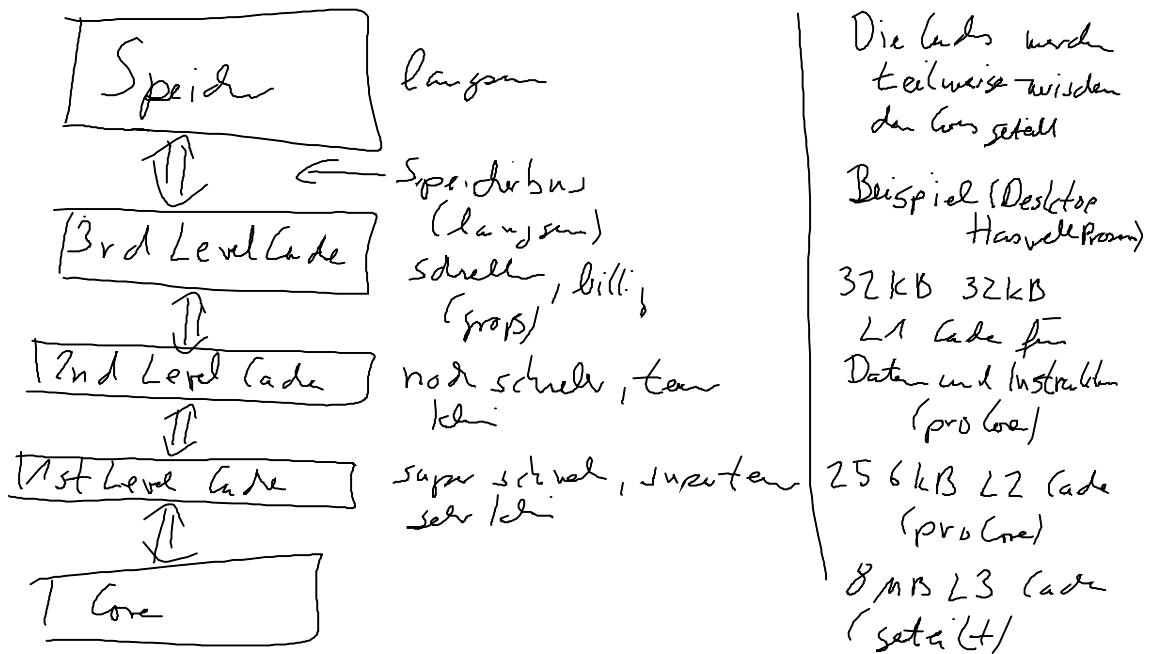 Speicher
langsam
Speicherbus
(langsam)
3rd Level Cache
schneller, billig
(groß)
2nd Level Cache
noch schneller, teuer
klein
1st Level Cache
super schnell, superteuer
sehr klein
Core
Die Caches werden
teilweise zwischen
den Cores geteilt
Beispiel (Desktop
Haswell Prozessor)
32kB 32kB
L1 Cache für
Daten und Instruktionen
(pro Core)
256kB L2 Cache
(pro Core)
8 MB L3 Cache
(geteilt)